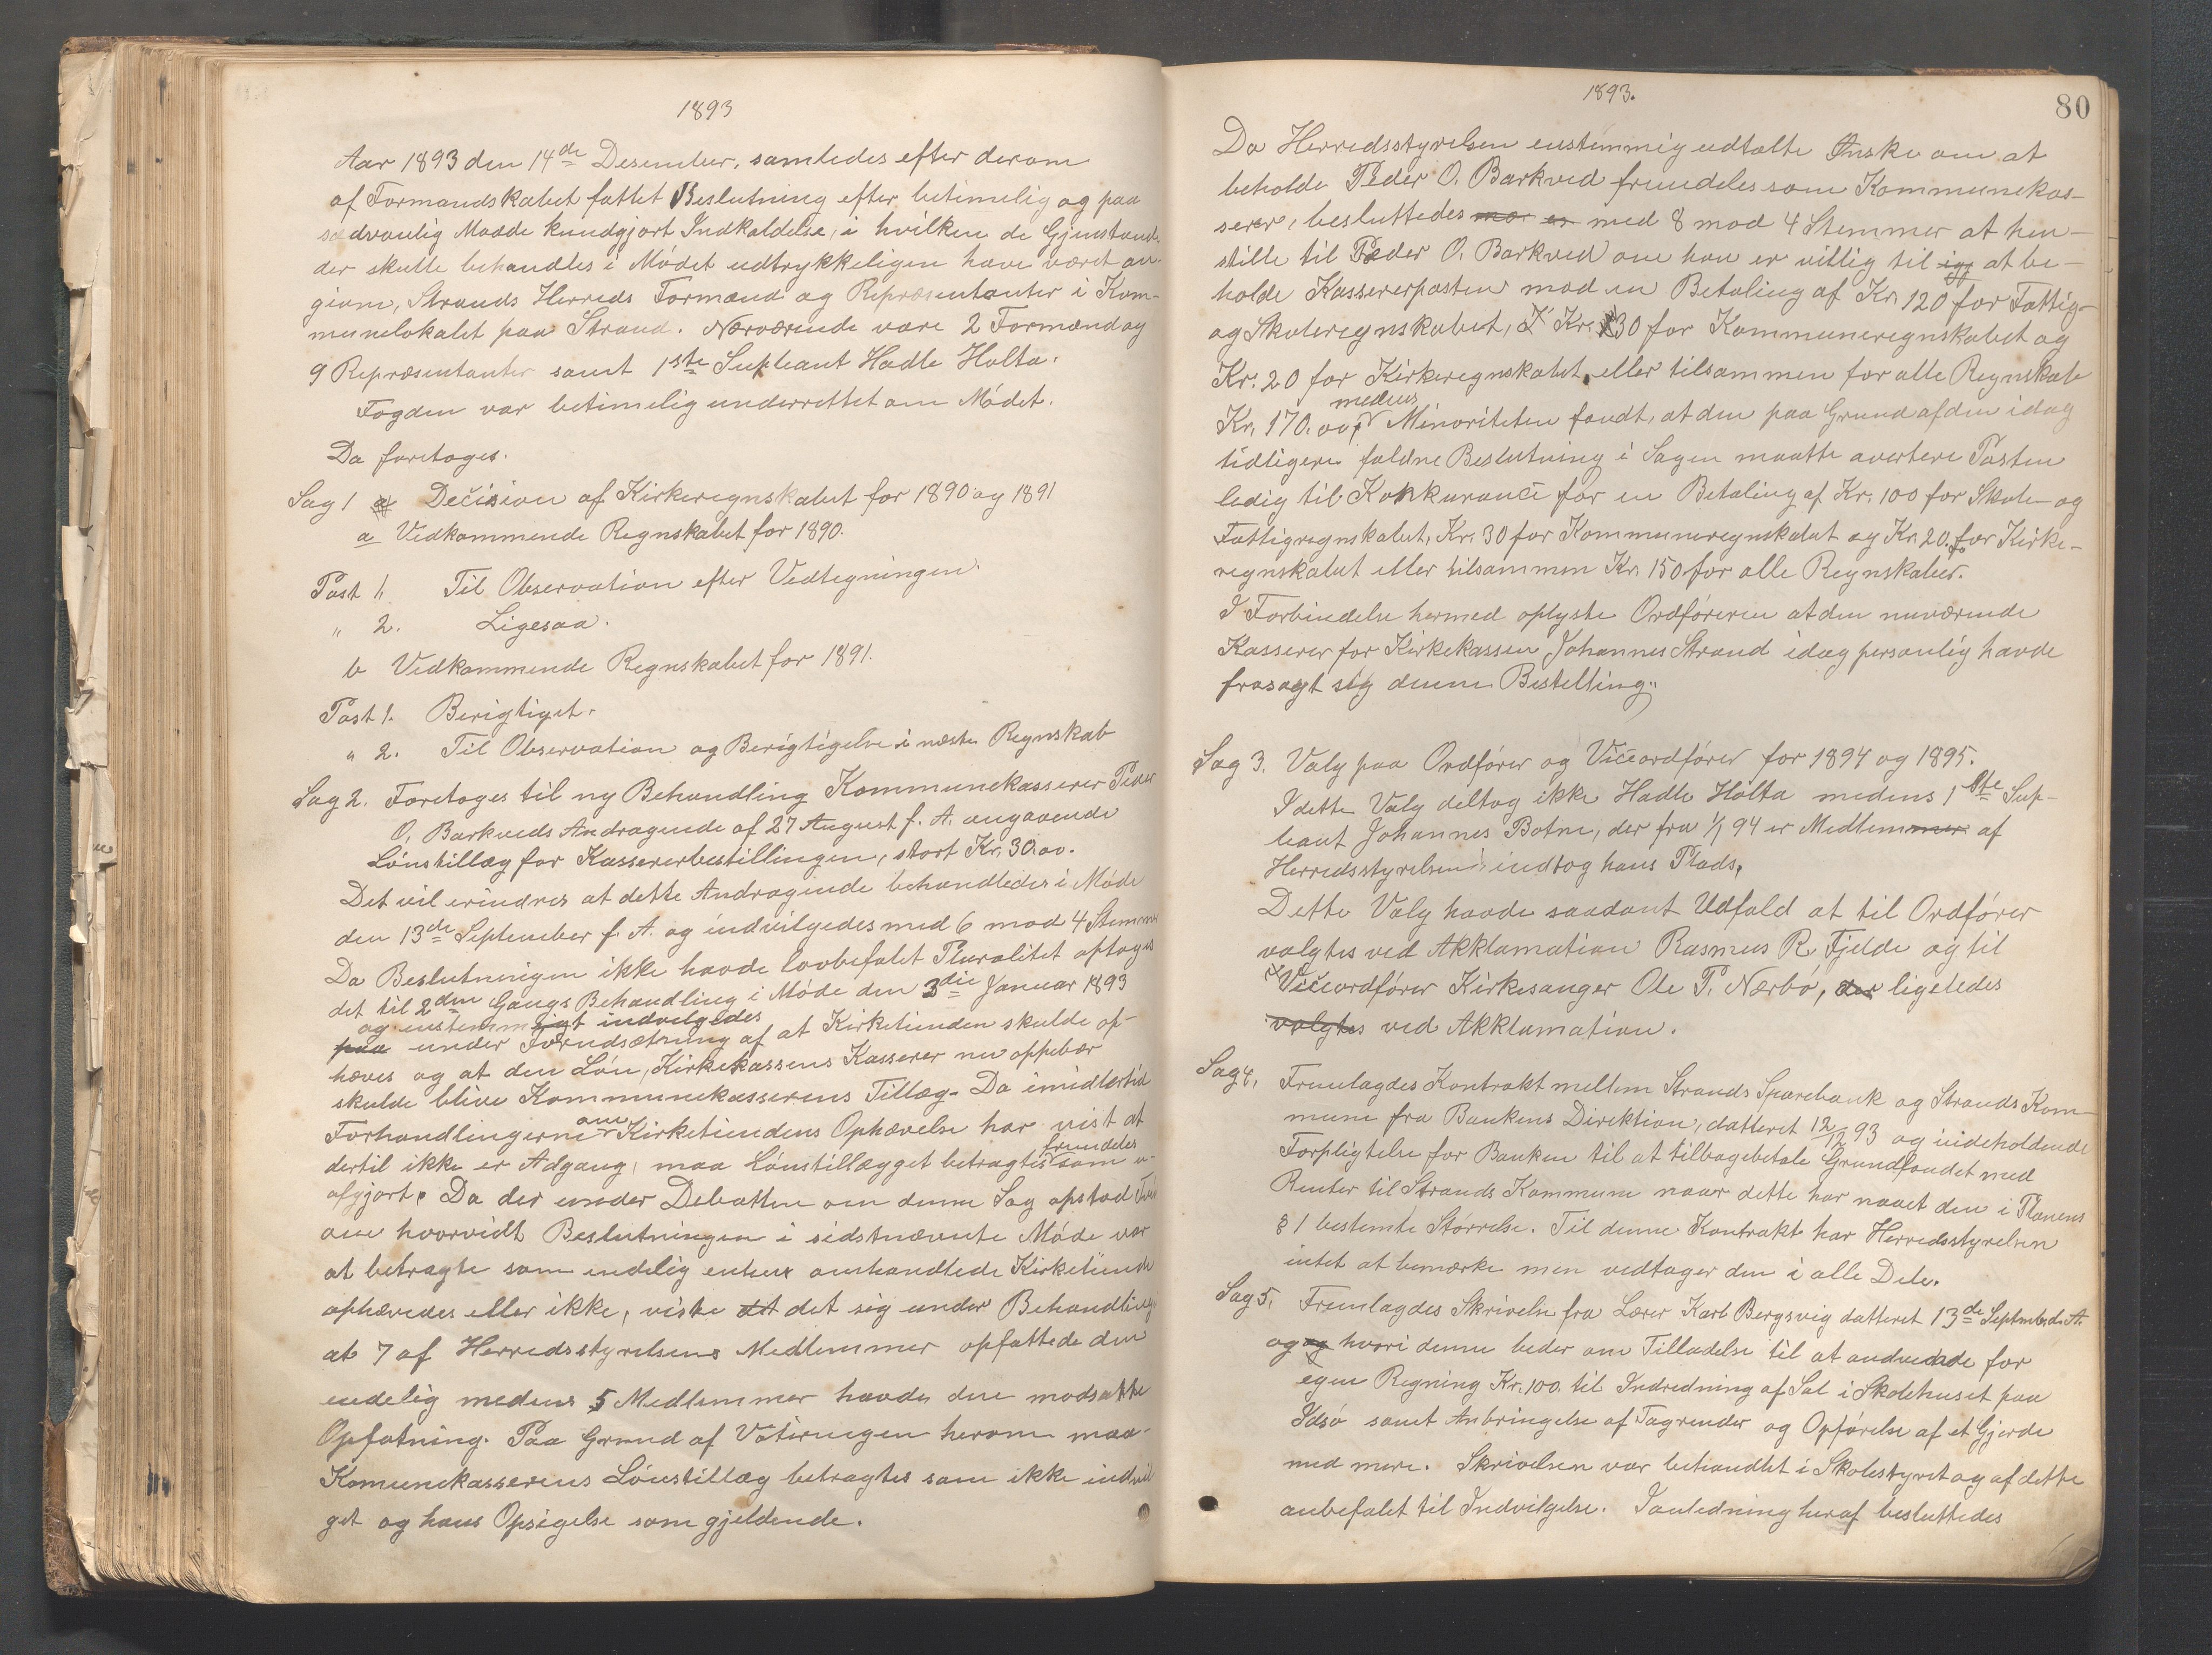 1893
Aar 1893 den 14de Desember, samledes efter derom
af Formandskabet fattet Beslutning efter betimelig og paa
sædvanlig Maade kundgjort Indkaldelse, i hvilken de Gjenstan-
der skulle behandles i Mødet udtrykkeligen have været an-
givne, Strands Herreds Formænd og Repræsentanter i Kom-
munelokalet paa Strand. Nærværende vare 2 Formænd og
9 Repræsentanter samt 1ste Supleant Hadle Holta.
Fogden var betimelig underrettet om Mødet.
Da foretoges.
Sag 1 Decision af Kirkeregnskabet for 1890 og 1891
a Vedkommende Regnskabet for 1890.
Post 1. Til Observation efter Vedtegningen.
" 2. Ligesaa.
b Vedkommende Regnskabet for 1891.
Post 1. Berigtiget.
" 2. Til Observation og Berigtigelse i næste Regnskab
Sag 2. Foretoges til ny Behandling Kommunekasserer Peder
O. Barkveds Andragende af 27 August f. A. angaaende
Lønstillæg for Kassererbestillingen, stort Kr. 30.00.
Det vil erindres at dette Andragende behandledes i Møde
den 13de September f. A. og indvilgedes med 6 mod 4 Stemmer
Da Beslutningen ikke havde lovbefalet Pluralitet optoges
det til 2den Gangs Behandling i Møde den 3die Januar 1893
og enstemmigt indvilgedes
paa under Forudsætning af at Kirketienden skulde op-
hæves og at den Løn, Kirkekassens Kasserer nu oppebær
skulde blive Kommunekassererens Tillæg. Da imidlertid
Forhandlingerne om Kirketiendens Ophævelse har vist at
dertil ikke er Adgang, maa Lønstillægget betragtes fremdeles som u-
afgjort. Da der under Debatten om denne Sag opstod Tvivl
om hvorvidt Beslutningen i sidstnævnte Møde var
at betragte som endelig enten omhandlede Kirketiende
ophævedes eller ikke, viste det det sig under Behandling
at 7 af Herredsstyrelsens Medlemmer opfattede den
endelig medens 5 Medlemmer havde den modsatte
Opfatning. Paa Grund af Voteringen herom maa
Komunekassererens Lønstillæg betragtes som ikke indvil
get og hans Opsigelse som gjeldende.
1893.
80
Da Herredsstyrelsen enstemmig udtalte Ønske om at
beholde Peder O. Barkved fremdeles som Kommunekas-
serer, besluttedes med 8 mod 4 Stemmer at hen-
stille til Peder O. Barkved om han er villig til at be-
holde Kassererposten mod en Betaling af Kr. 120 for Fattig-
og Skoleregnskabet, Kr. 30 for Kommuneregnskabet og
Kr. 20 for Kirkeregnskabet eller tilsammen for alle Regnskab
Kr. 170.00, medens Minoriteten fandt, at den paa Grund af den idag
tidligere faldne Beslutning i Sagen maatte avertere Posten
ledig til Konkurance for en Betaling af Kr. 100 for Skole- og
Fattigregnskabet, Kr. 30 for Kommuneregnskabet og Kr. 20. for Kirke-
regnskabet eller tilsammen Kr. 150 for alle Regnskaber.
I Forbindelse hermed oplyste Ordføreren at den nuværende
Kasserer for Kirkekassen Johannes Strand idag personlig havde
frasagt sig denne Bestilling.
Sag 3. Valg paa Ordfører og Viceordfører for 1894 og 1895.
I dette Valg deltog ikke Hadle Holta medens 1ste Sup-
leant Johannes Botne, der fra 1/1 94 er Medlemmer af
Herredsstyrelsen, indtog hans Plads.
Dette Valg havde saadant Udfald at til Ordfører
valgtes ved Akklamation Rasmus R. Fjelde og til
Viceordfører Kirkesanger Ole P. Nærbø, der ligeledes
valgtes ved Akklamation.
Sag 4. Fremlagdes Kontrakt mellem Strands Sparebank og Strands Kom-
mune fra Bankens Direktion, datteret 12/12 93 og indeholdende
Forpligtelse for Banken til at tilbagebetale Grundfondet med
Renter til Strands Kommune naar dette har naaet den i Planens
§ 1 bestemte Størrelse. Til denne Kontrakt har Herredsstyrelsen
intet at bemærke men vedtager den i alle Dele.
Sag 5. Fremlagdes Skrivelse fra Lærer Karl Bergsvig datteret 13de September d. A.
og og hvori denne beder om Tilladelse til at anvende for
egen Regning Kr. 100. til Indredning af Sal i Skolehuset paa
Idsø samt Anbringelse af Tagrender og Opførelse af et Gjerde
med mere. Skrivelsen var behandlet i Skolestyret og af dette
anbefalet til Indvilgelse. I anledning heraf besluttedes